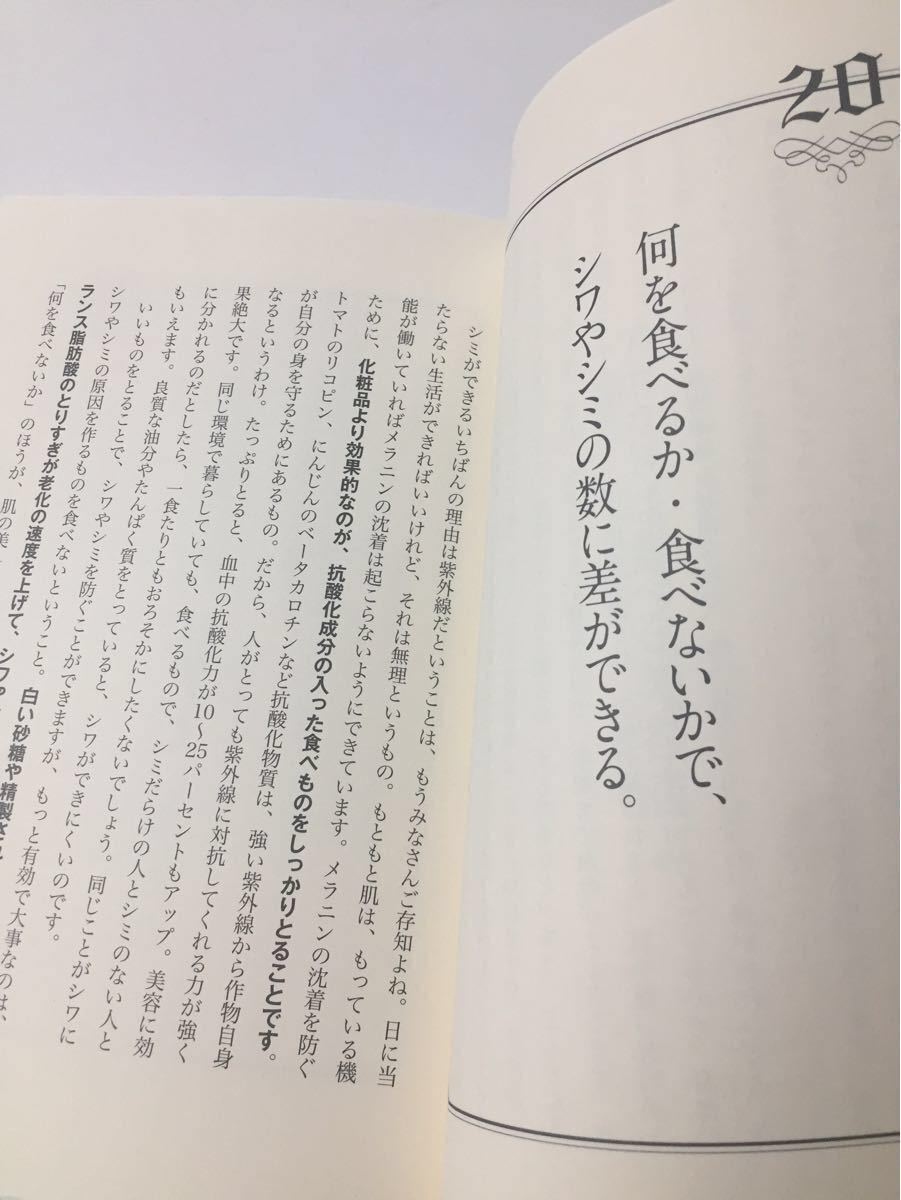 20
何を食べるか・食べないかで、
シワやシミの数に差ができる。
シミができるいちばんの理由は紫外線だということは、もうみなさんご存知よね。日に当
たらない生活ができればいいけれど、それは無理というもの。もともと肌は、もっている機
能が働いていればメラニンの沈着は起こらないようにできています。メラニンの沈着を防ぐ
ために、化粧品より効果的なのが、抗酸化成分の入った食べものをしっかりとることです。
トマトのリコピン、にんじんのベータカロチンなど抗酸化物質は、強い紫外線から作物自身
が自分の身を守るためにあるもの。だから、人がとっても紫外線に対抗してくれる力が強く
なるというわけ。たっぷりとると、血中の抗酸化力が10〜25パーセントもアップ。美容に効
果絶大です。同じ環境で暮らしていても、食べるもので、シミだらけの人とシミのない人と
に分かれるのだとしたら、一食たりともおろそかにしたくないでしょう。同じことがシワに
もいえます。良質な油分やたんぱく質をとっていると、シワができにくいのです。
いいものをとることで、シワやシミを防ぐことができますが、もっと有効で大事なのは、
シワやシミの原因を作るものを食べないということ。白い砂糖や精製され
ランス脂肪酸のとりすぎが老化の速度を上げて、シワ
「何を食べないか」のほうが、肌の美